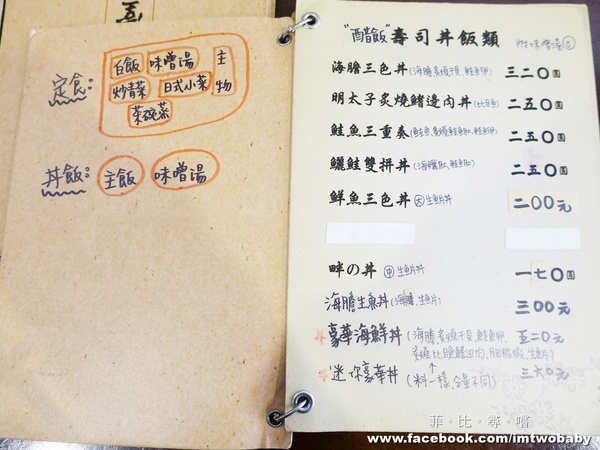 定食:
白飯 味噌湯 主物
炒青菜 日式小菜
茶碗蒸
丼飯: 主飯 味噌湯
"醋飯"壽司丼飯類 附味噌湯
海膽三色丼(海膽,炙燒干貝,鮭魚卵) 三二0圓
明太子炙燒鰭邊肉丼(比目魚) 二五0圓
鮭魚三重奏(鮭魚,炙燒鮭魚肚,鮭魚卵) 二五0圓
鱺鮭雙拼丼(海鱺肚,鮭魚肚) 二五0圓
鮮魚三色丼 大 生魚片丼 二00元
畔の丼 中 生魚片丼 一七0圓
海膽生魚丼(海膽,生魚片) 三00元
豪華海鮮丼(海膽,炙燒干貝,鮭魚卵, 五二0元
炙燒比目魚鰭邊肉,甜蝦,生魚片)
迷你豪華丼(料一樣,份量不同) 三六0元
菲·比·尋·嚐
www.facebook.com/imtwobaby